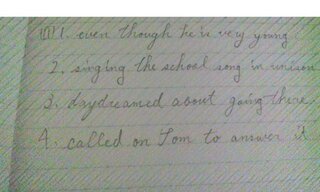 III 1. even though he is very young.
2. singing the school song in unison
3. daydreamed about going there
4. called on Tom to answer it